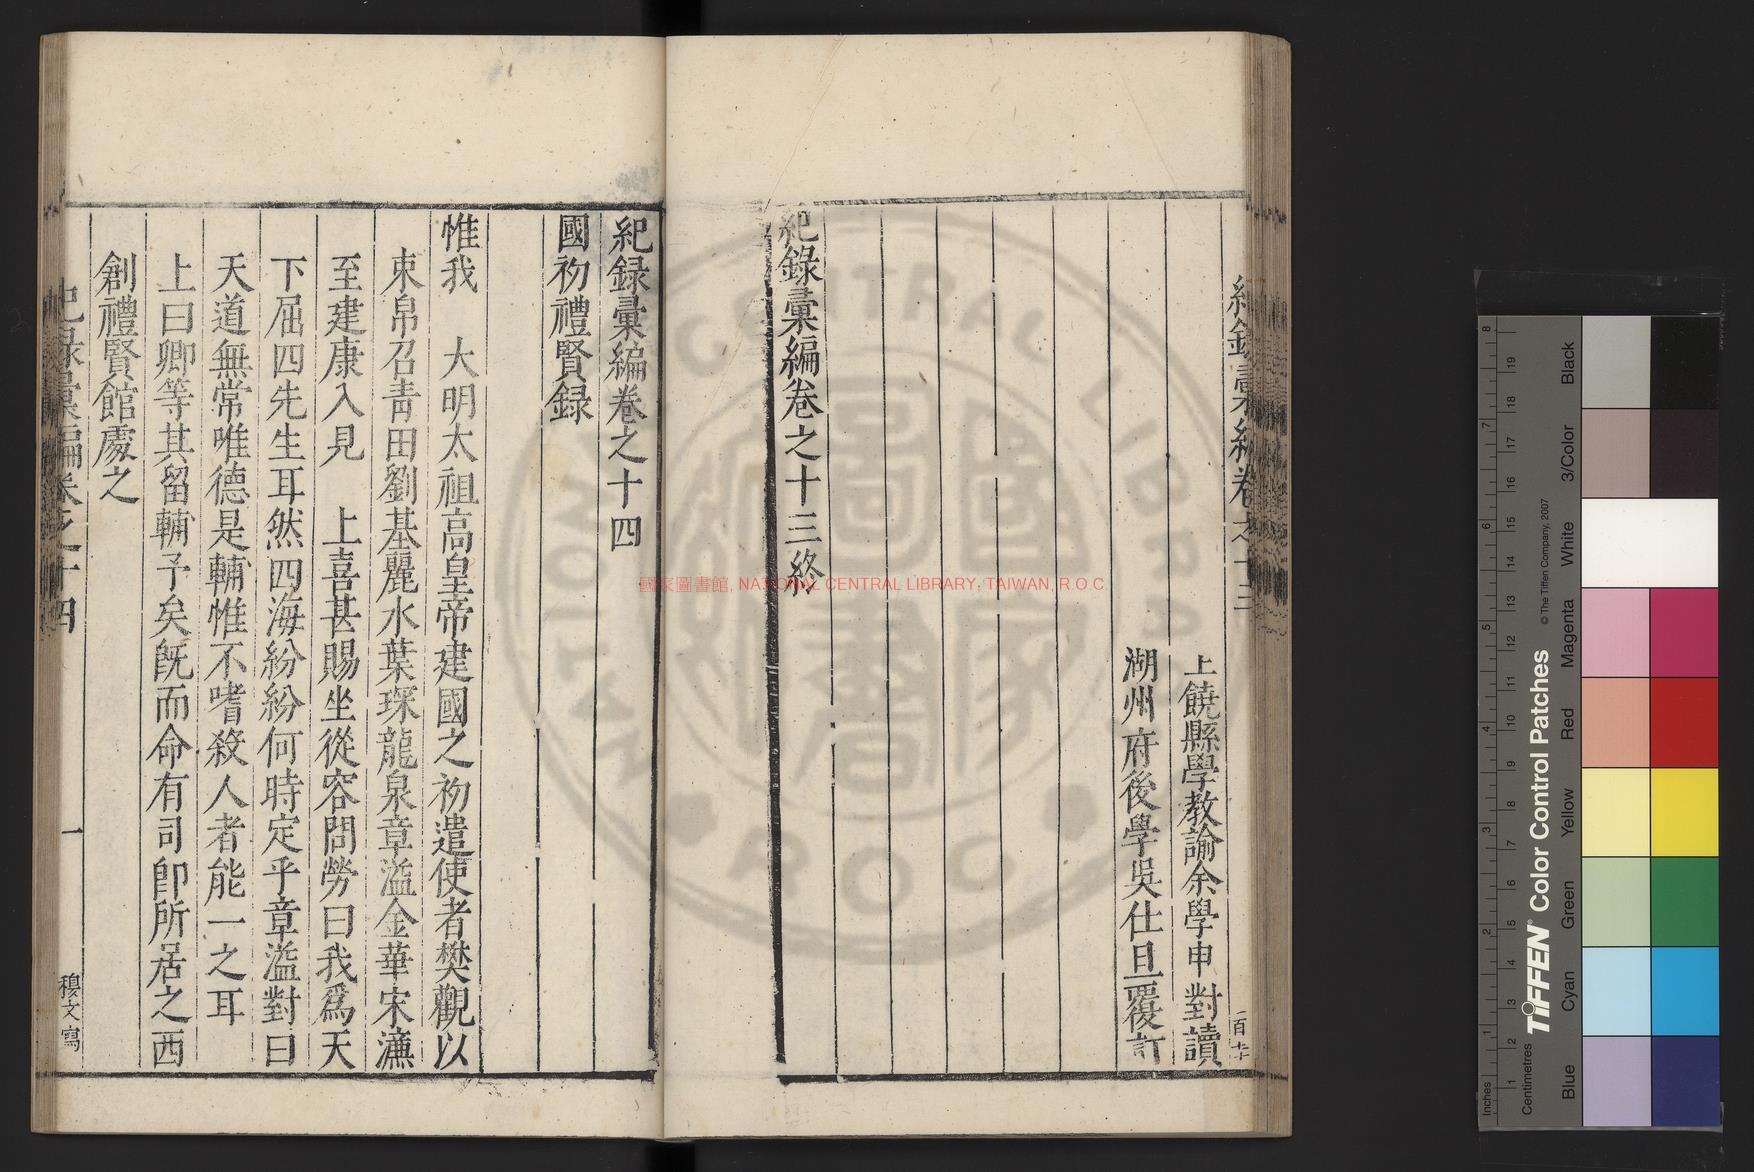 上饒縣學教諭余學申對讀
湖州府後學吳仕旦覆訂
紀錄彙編卷之十三終
紀録彙編卷之十四
國初禮賢録
惟我　大明太祖高皇帝建國之初遣使者樊觀以
束帛召青田劉基麗水葉琛龍泉章溢金華宋濂
至建康入見　上喜甚賜坐從容問勞曰我爲天
下屈四先生耳然四海紛紛何時定乎章溢對曰
天道無常唯德是輔惟不嗜殺人者能一之耳
上曰卿等其留輔予矣旣而命有司卽所居之西
創禮賢館處之
紀録彙編卷之十四
一
穆文寫
國家圖書館, NATIONAL CENTRAL LIBRARY, TAIWAN, R.O.C
TIFFEN® Color Control Patches
© The Tiffen Company, 2007
Inches
Centimetres
Blue
Cyan
Green
Yellow
Red
Magenta
White
3/Color
Black